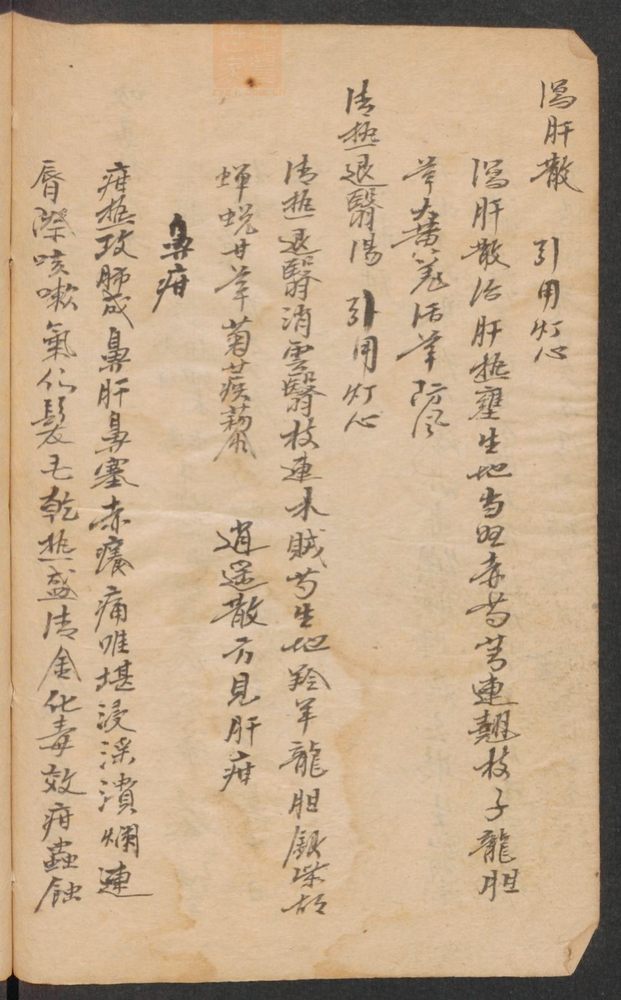 瀉肝散　引用灯心
瀉肝散治肝热壅生地当归赤芍芎連翹枝子龍胆
草大黄羗活草防风
清热退翳湯　引用灯心
清热退翳消雲翳枝連木賊芍生地羚羊龍胆銀柴胡
蟬蛻甘草菊蒺藜　逍遥散方見肝疳
鼻疳
疳热攻肺成鼻肝鼻塞赤癢痛唯堪浸淫潰爛連
唇際咳嗽氣促髮毛乾热盛清金化毒效疳蟲蝕